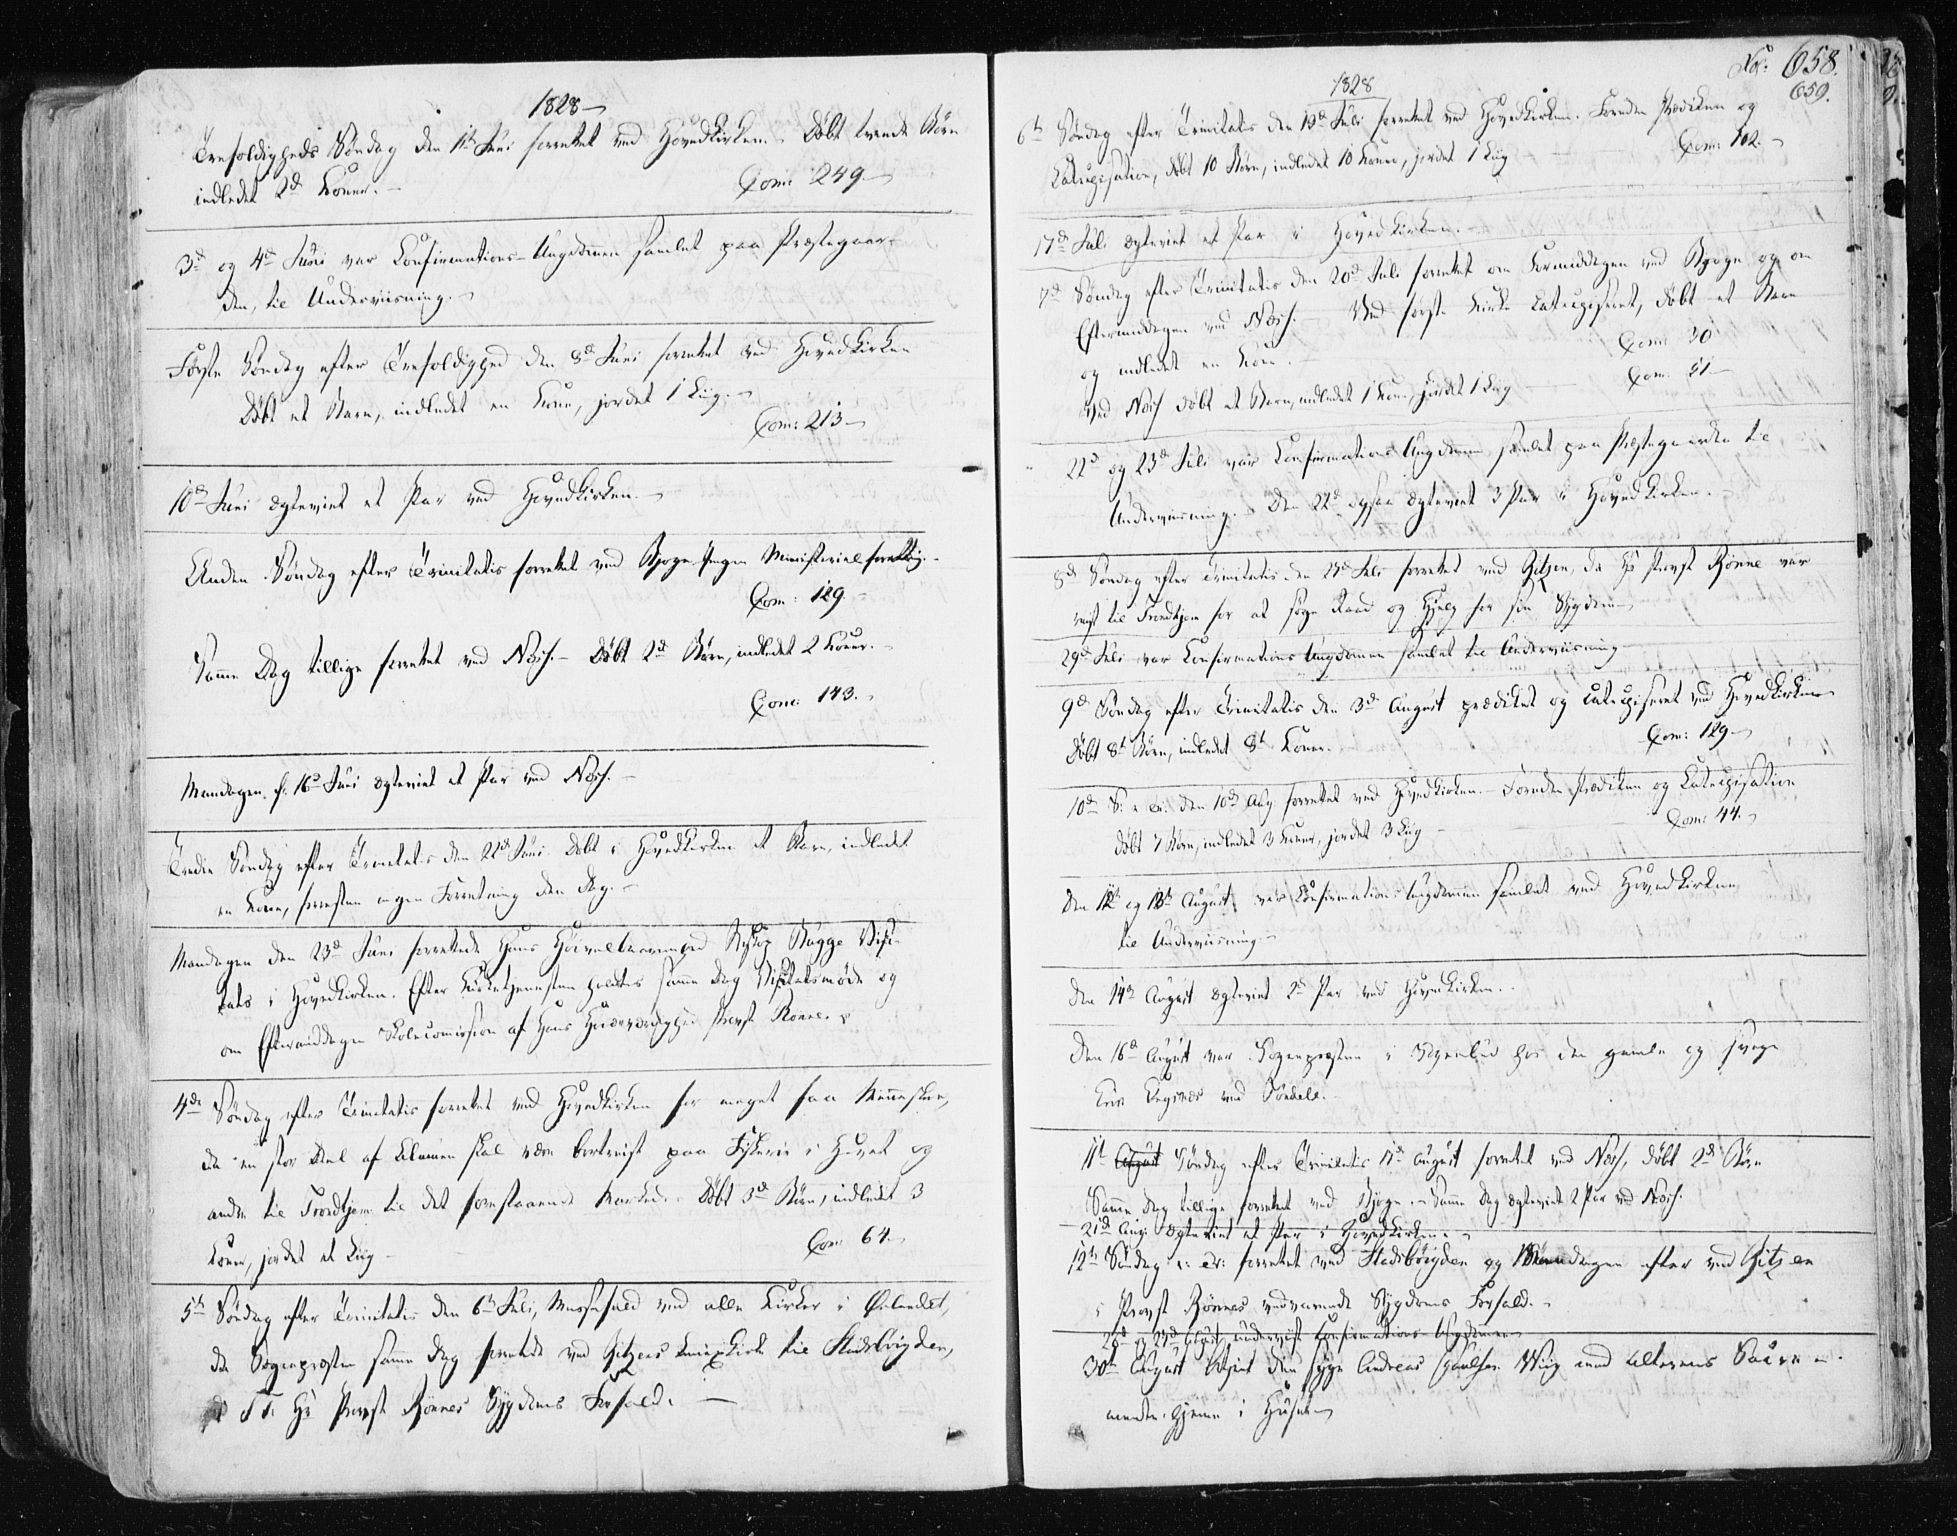 1828
Trefoldigheds Søndag den 1te Juni forrettet ved Hovedkirken. Døbt tvende Børn
indledet 2de Koner. Com: 249.
3de og 4de Juni var Confirmations-Ungdommen samlet paa Præstegaar-
den, til Underviisning.
Første Søndag efter Trefoldighed den 8de Juni forrettet ved Hovedkirken
Døbt et Barn, indledet en Kone, jordet 1 Liig.
Com: 213
10de Juni ægteviet et Par ved Hovedkirken.
Anden Søndag efter Trinitatis forrettet ved Ingen Ministerialforretning.
Com: 129.
Samme Dag tillige forrettet ved Næss. Døbt 2de Børn, indledet 2 Koner.
Com: 143.
Mandagen d. 16de Juni ægteviet et Par ved Næss.
Tredie Søndag efter Trinitatis den 22de Juni Døbt i Hovedkirken et Barn, indledet
en Kone, forresten ingen Forretning den Dag.
Mandagen den 23de Juni forrettede Hans Høivelbaarenhed Biskop Bugge Visi-
tats i Hovedkirken. Efter Kirketjenesten holdtes samme Dag Visitatsmøde og
om Eftermiddagen Skolecomission af Hans Høiærværdighed Provst Rønne.
4de Søndag efter Trinitatis forrettet ved Hovedkirken for meget faa Mennesker,
da en stor Deel af Almuen skal være bortreist paa Fiskerie i Havet og
andre til Trondhjem til det forestaaende Marked. Døbt 3de Børn, indledet 3
Koner, jordet et Liig Com: 64.
5te Søndag efter Trinitatis den 6te Juli, Messefald ved alle Kirker i Ørlandet,
da Sognepræsten samme Dag forrettede ved Gitzens Annexkirke til Stadsbøigden,
i Hr Provst Rønnes Sygdoms Forfald.
No: 658.
659.
1828
6te Søndag efter Trinitatis den 13de Juli forrettet ved Hovedkirken. Foruden Prædiken og
Catechisation, døbt 10 Børn, indledet 10 Koner, jordet 1 Liig Com: 102.
17de Juli ægteviet et Par i Hovedkirken.
7de Søndag efter Trinitatis den 20de Juli forrettet om Formiddagen ved og om
Eftermiddagen ved Næss. Ved første Kirke Catechiseret, døbt et Barn
og indledet en Kone. Com: 30
Ved Næss døbt et Barn, indledet 1 Kone, jordet 1 Liig Com: 51
22de og 23de Juli var Confirmations Ungdommen samlet paa Præstegaarden til
Underviisning. Den 22de ogsaa ægteviet 3 Par i Hovedkirken.
8de Søndag efter Trinitatis den 27de Juli forrettet ved Gitzen, da Hr Provst Rønne var
reist til Trondhjem for at søge Raad og Hjelp for sin Sygdom
29de Juli var Confirmations Ungdommen samlet til Underviisning
9de Søndag efter Trinitatis den 3de August prædiket og catechiseret ved Hovedkirken
Døbt 8te Børn, indledet 8te Koner. Com: 129.
10de S: e: Tr: den 10de Aug forrettet ved Hovedkirken. Foruden Prædiken og Catechisation
døbt 7 Børn, indledet 3 Koner, jordet 3 Liig Com: 44.
Den 12te og 13te August var Confirmations Ungdommen samlet ved Hovedkirken
til Underviisning.
Den 14de August ægteviet 2de Par ved Hovedkirken.
Den 16de August var Sognepræsten i hos den gamle og syge
ved
11te August Søndag efter Trinitatis 17de August forrettet ved Næss, døbt 2de Børn
Samme Dag tillige forrettet ved Samme Dag ægteviet 2 Par ved Næss.
21de Aug: ægteviet et Par i Hovedkirken.
12te Søndag e: Tr: forrettet ved Stadsbøigden og Mandagen efter ved Gitzen
i Provst Rønnes vedvarende Sygdoms Forfald.
August underviist Confirmations-Ungdommen
30te August den syge Andreas Paulsen med Alterens Sacra-
mente hjemme i Huset